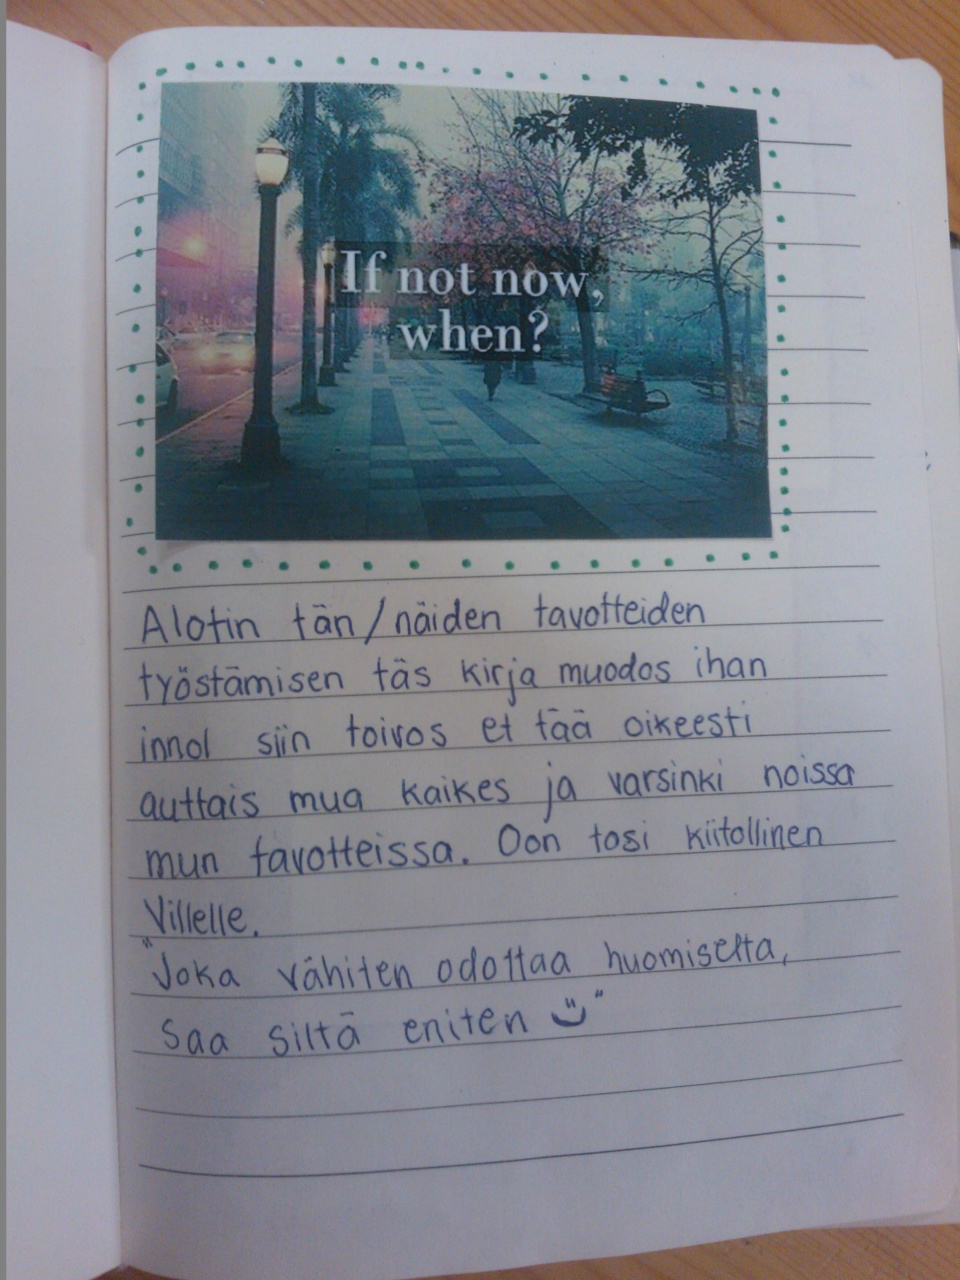 If not now,
when?
Alotin tän/näiden tavotteiden
työstämisen täs kirja muodos ihan
innol siin toivos et tää oikeesti
auttais mua kaikes ja varsinki noissa
mun tavotteissa. Oon tosi kiitollinen
Villelle.
"Joka vähiten odottaa huomiselta,
saa siltä eniten ☺"